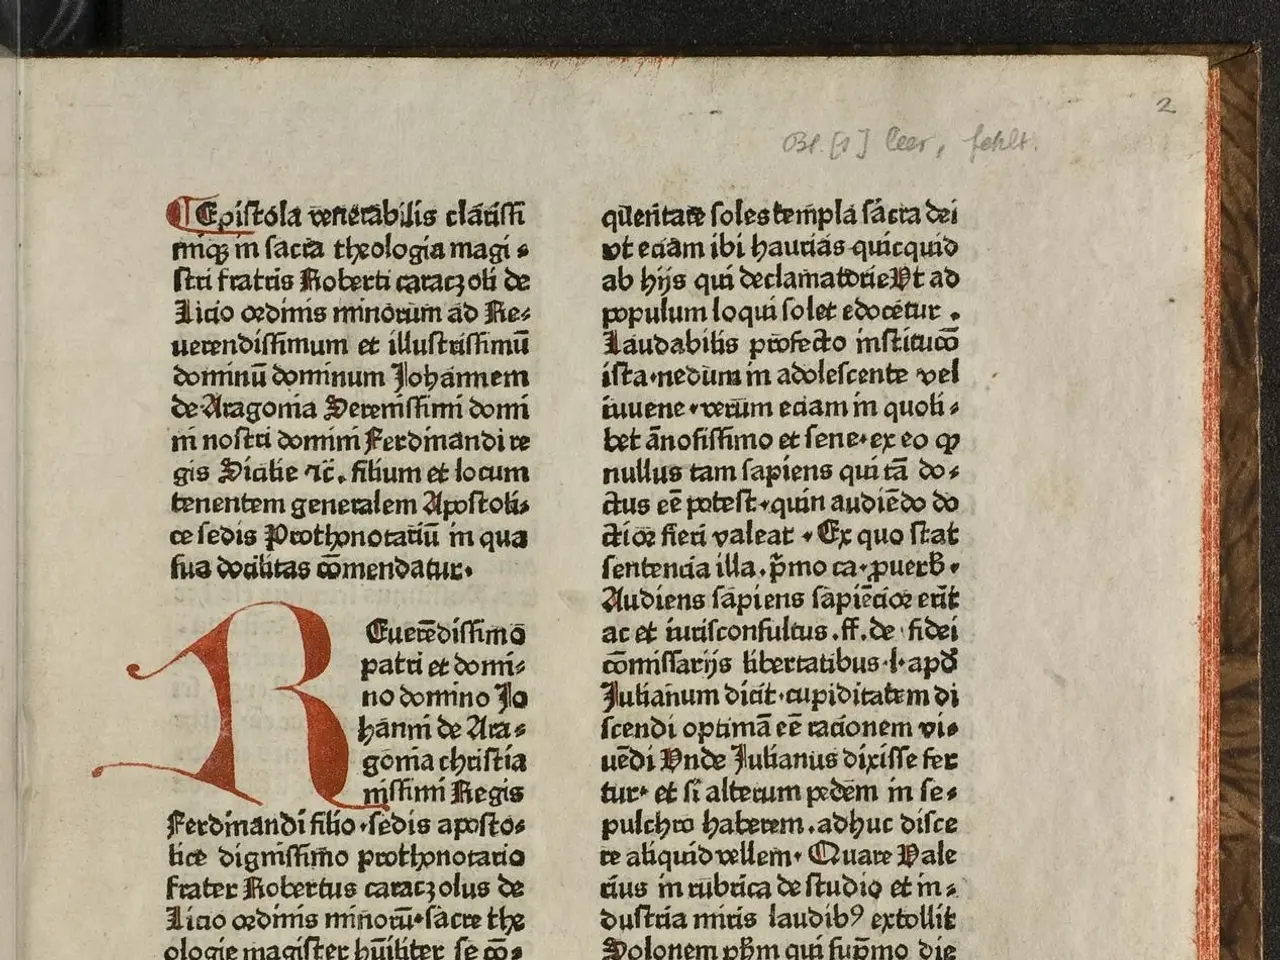 2
Bl. [1] leer, fehlt.
Epistola venerabilis clarissi
miqꝫ in sacra theologia magi⸗
stri fratris Roberti caraczoli de
Licio ordinis minorum ad Re⸗
uerendissimum et illustrissimū
dominū dominum Johannem
de Aragonia Serenissimi domi
ni nostri domini Ferdinandi re
gis Sicilie ⁊c̄. filium et locum
tenentem generalem Apostoli⸗
ce sedis Prothonotariū in qua
sua docilitas cōmendatur.
REuerēdissimo
patri et domi⸗
no domino Jo
hanni de Ara⸗
gonia christia
nissimi Regis
Ferdinandi filio.sedis aposto⸗
lice dignissimo prothonotario
frater Robertus caraczolus de
Licio ordinis minorū.sacre the
ologie magister hūiliter se cō⸗
q̄ueritare soles templa sacra dei
vt eciam ibi haurias quicquid
ab hijs qui declamatorie Vt ad
populum loqui solet edocetur .
Laudabilis profecto institucō
ista.nedum in adolescente vel
iuuene.verum eciam in quoli⸗
bet ānosissimo et sene.ex eo ꝙ
nullus tam sapiens qui tā do⸗
ctus eē potest.quin audiēdo do
ctioꝛ fieri valeat . Ex quo stat
sentencia illa.p̄mo ca.ꝓuerb̄.
Audiens sapiens sapiēcioꝛ erit
ac et iurisconsultus.ff.de fidei
cōmissarijs libertatibus.l.apđ
Julianum dicit.cupiditatem di
scendi optimā eē racionem vi⸗
uēdi Vnde Julianus dixisse fer
tur. et si alterum pedem in se⸗
pulchro haberem.adhuc disce
re aliquid vellem. Quare Vale
rius in rubrica de studio et in⸗
dustria miris laudibꝰ extollit
Solonem pħm qui sup̄mo die